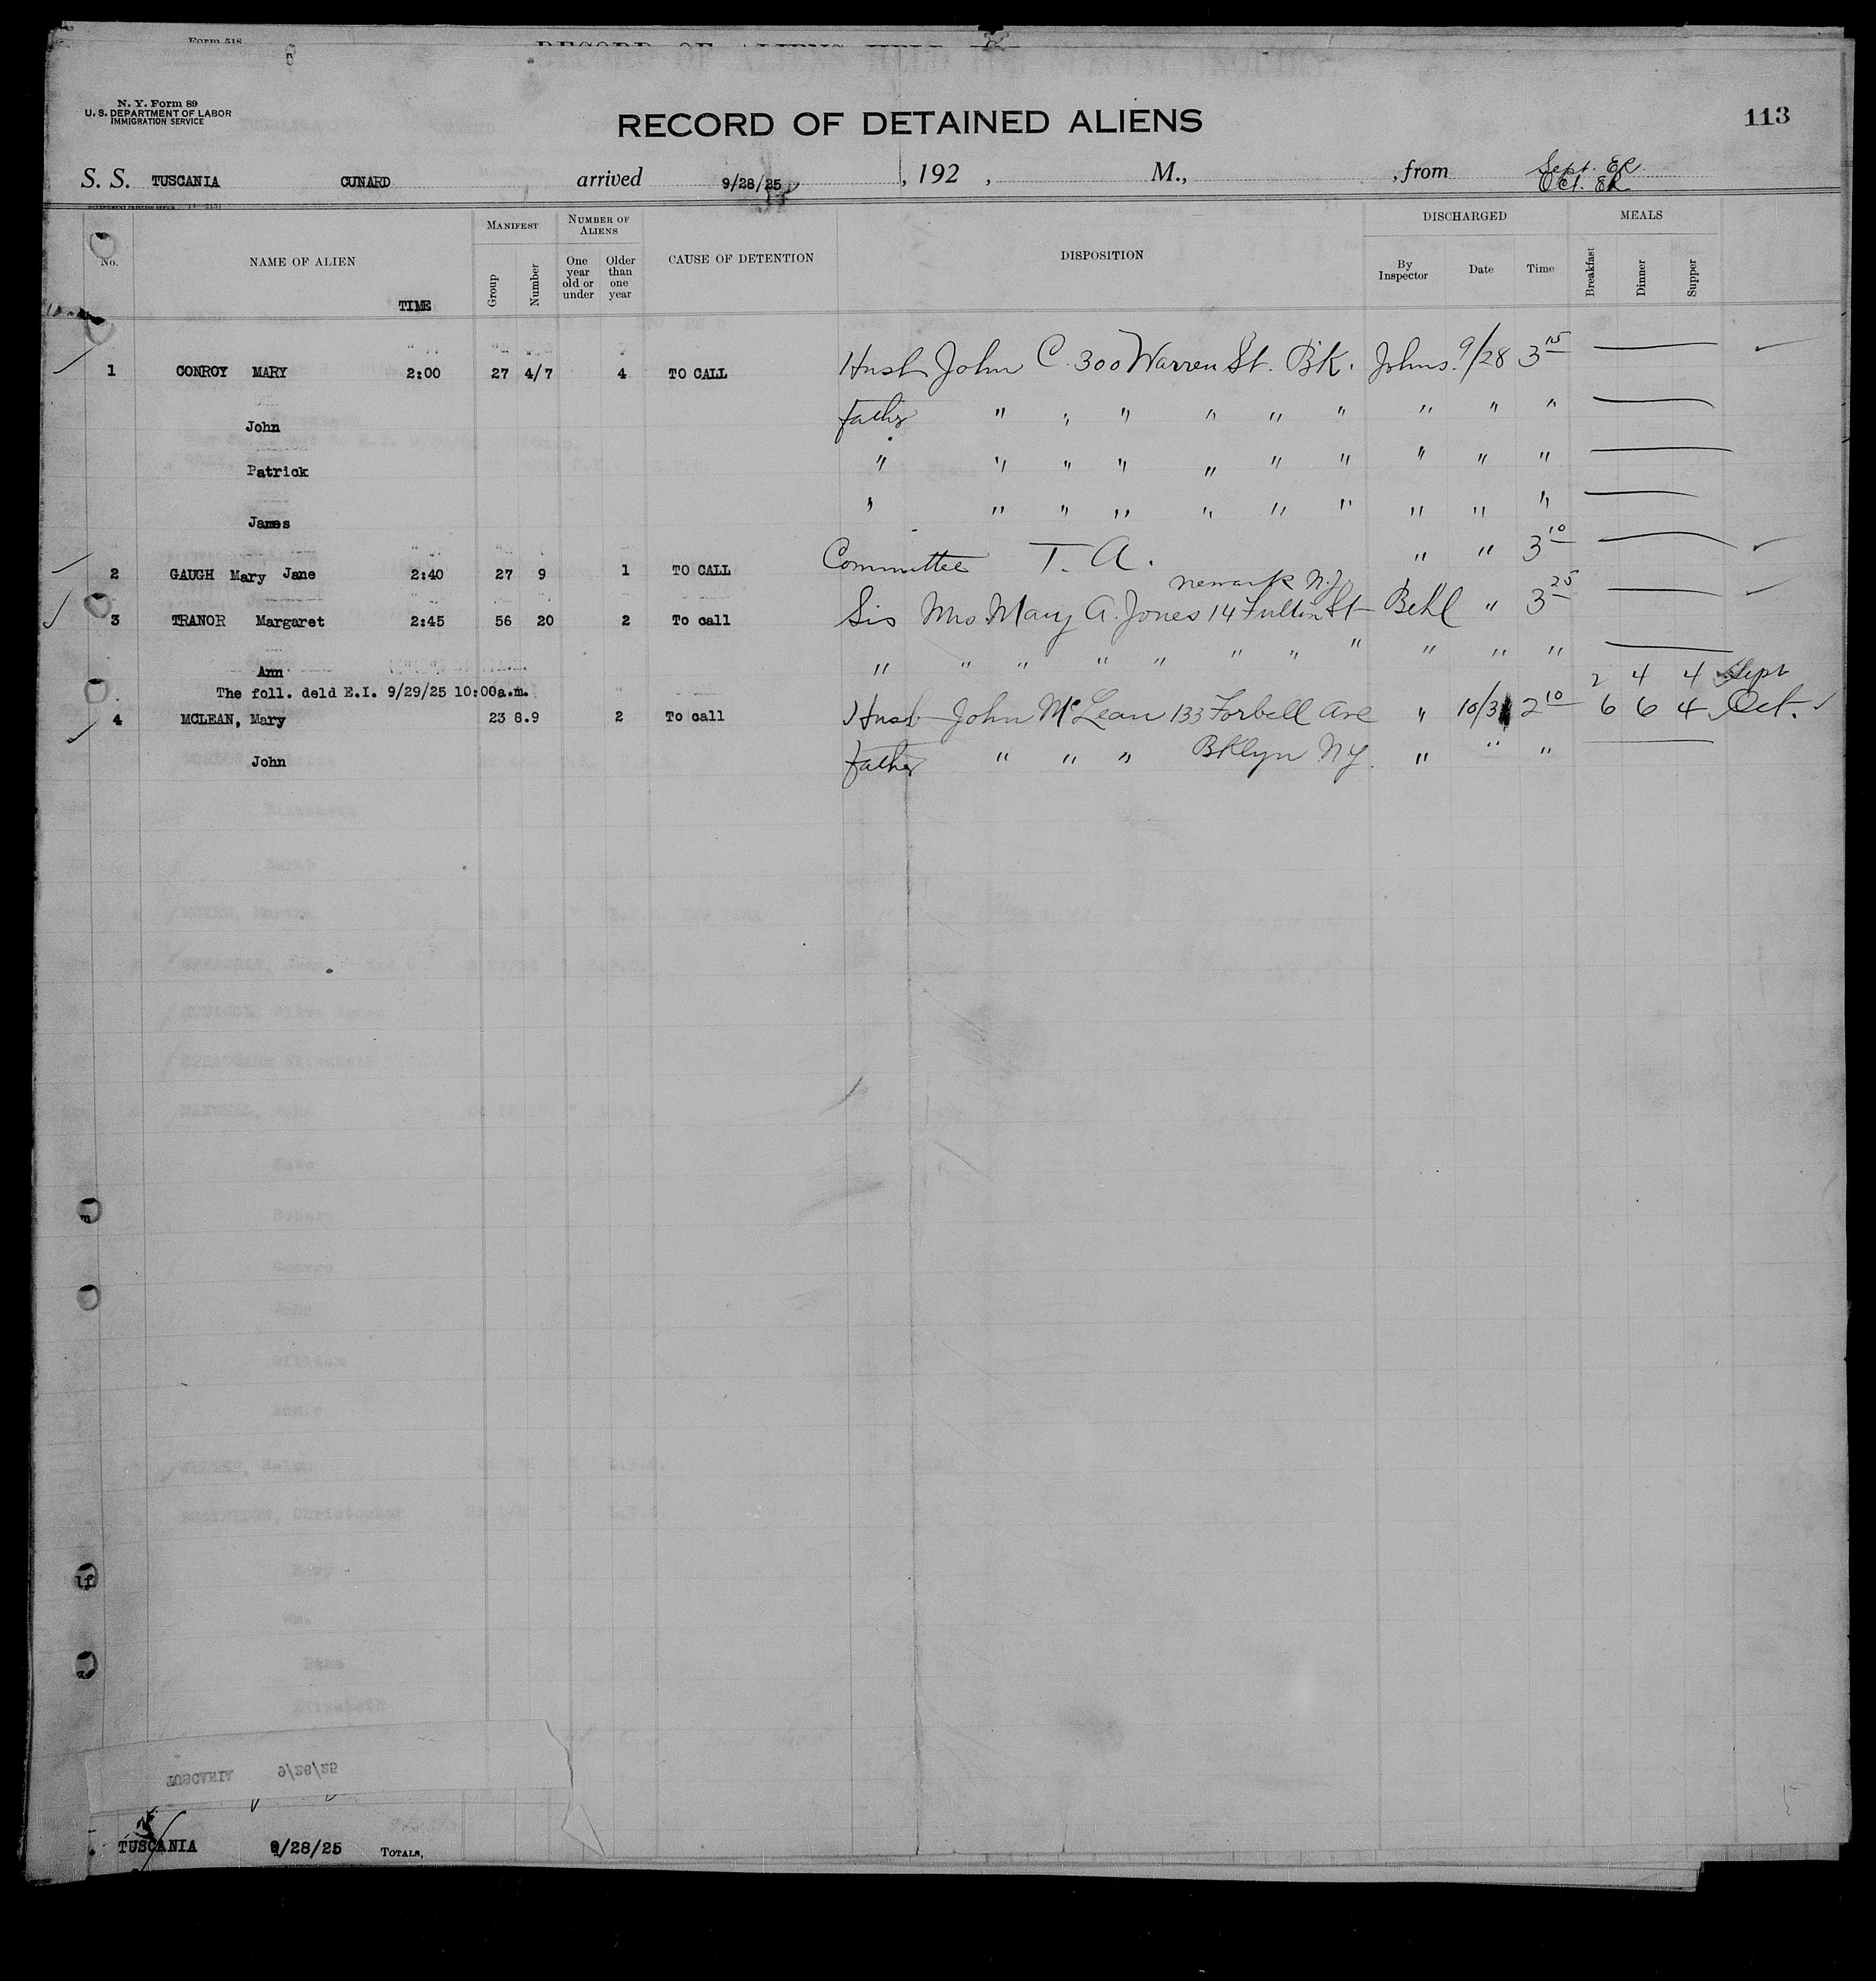 Form 518
RECORD OF ALIENS HELD FOR SPECIAL INQUIRY
N. Y. Form 89
U. S. DEPARTMENT OF LABOR
IMMIGRATION SERVICE
RECORD OF DETAINED ALIENS
113
S. S. TUSCANIA CUNARD arrived 9/28/25, 192 , M., , from Sept. ER
Oct. ER
GOVERNMENT PRINTING OFFICE
No. NAME OF ALIEN TIME MANIFEST Group Number NUMBER OF ALIENS One year old or under Older than one year CAUSE OF DETENTION DISPOSITION DISCHARGED By Inspector Date Time MEALS Breakfast Dinner Supper
1 CONROY MARY 2:00 27 4/7 4 TO CALL Husb John C. 300 Warren St. BK. Johns. 9/28 3 15
John Father " " " " " " " " "
Patrick " " " " " " " " " "
James " " " " " " " " " "
2 GAUGH Mary Jane 2:40 27 9 1 TO CALL Committee T. A. " " 3 10
Newark N.J.
3 TRANOR Margaret 2:45 56 20 2 To call Sis Mrs Mary A. Jones 14 Fulton St Behl " 3 25
Ann " " " " " " " " " " "
The foll. deld E.I. 9/29/25 10:00a.m. 2 4 4 Sept
4 MCLEAN, Mary 23 8.9 2 To call Husb John McLean 133 Forbell Ave " 10/3 2 10 6 6 4 Oct.
John Father " " " Bklyn NY. " " "
TUSCANIA 9/28/25
TUSCANIA 9/28/25 TOTALS,